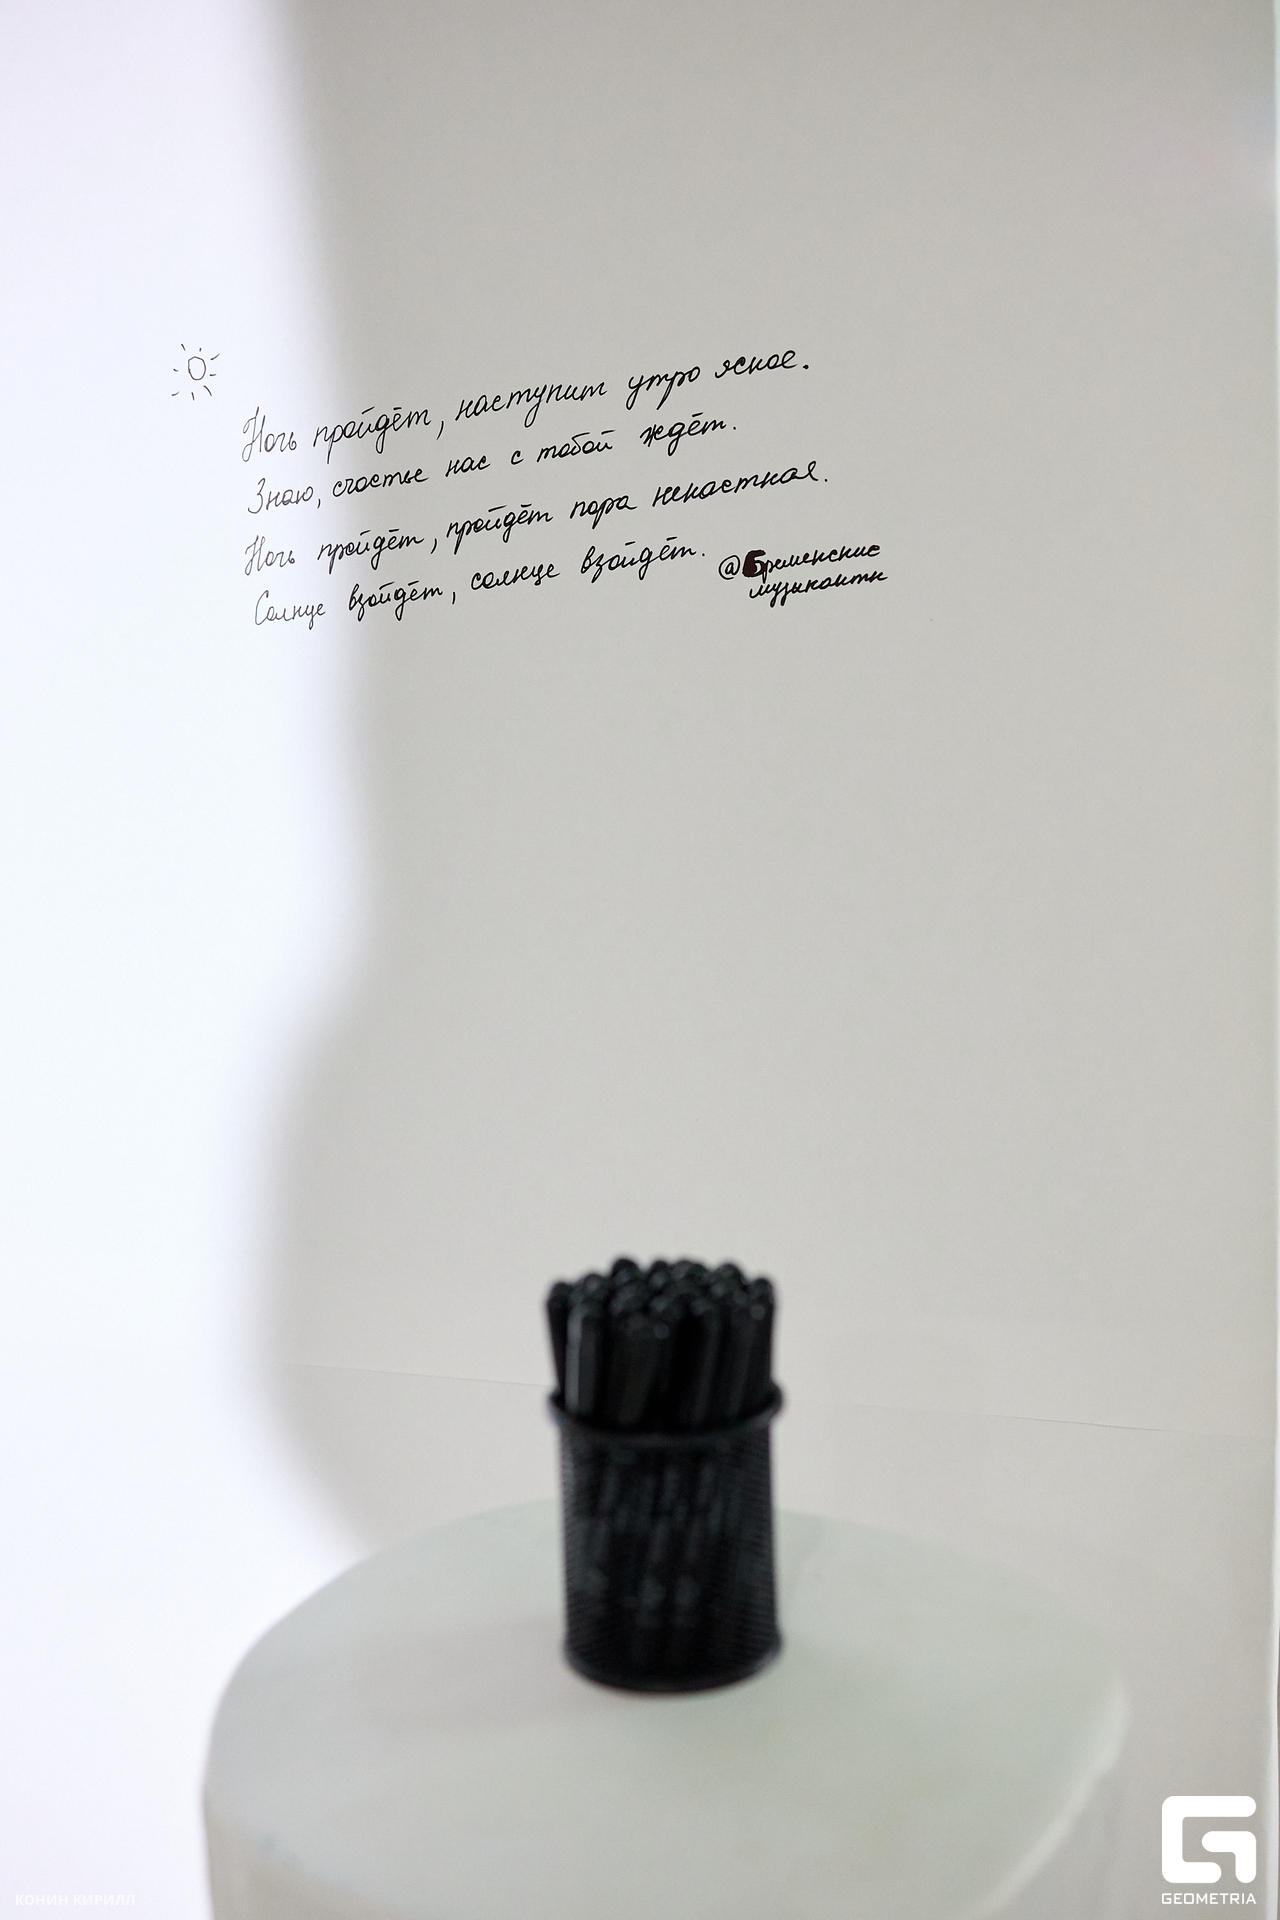 Ночь пройдёт, наступит утро ясное.
Знаю, счастье нас с тобой ждёт.
Ночь пройдёт, пройдёт пора ненастная.
Солнце взойдёт, солнце взойдёт.
@Бременские
музыканты
КОНИН КИРИЛЛ
GEOMETRIA